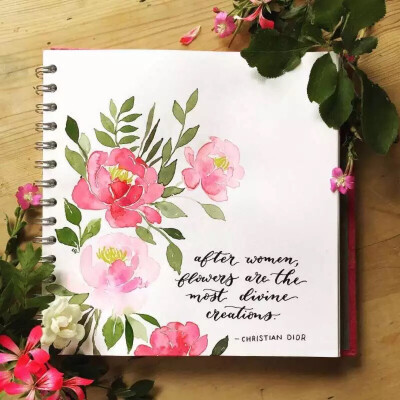 after women,
flowers are the
most divine
creations.
- CHRISTIAN DIOR